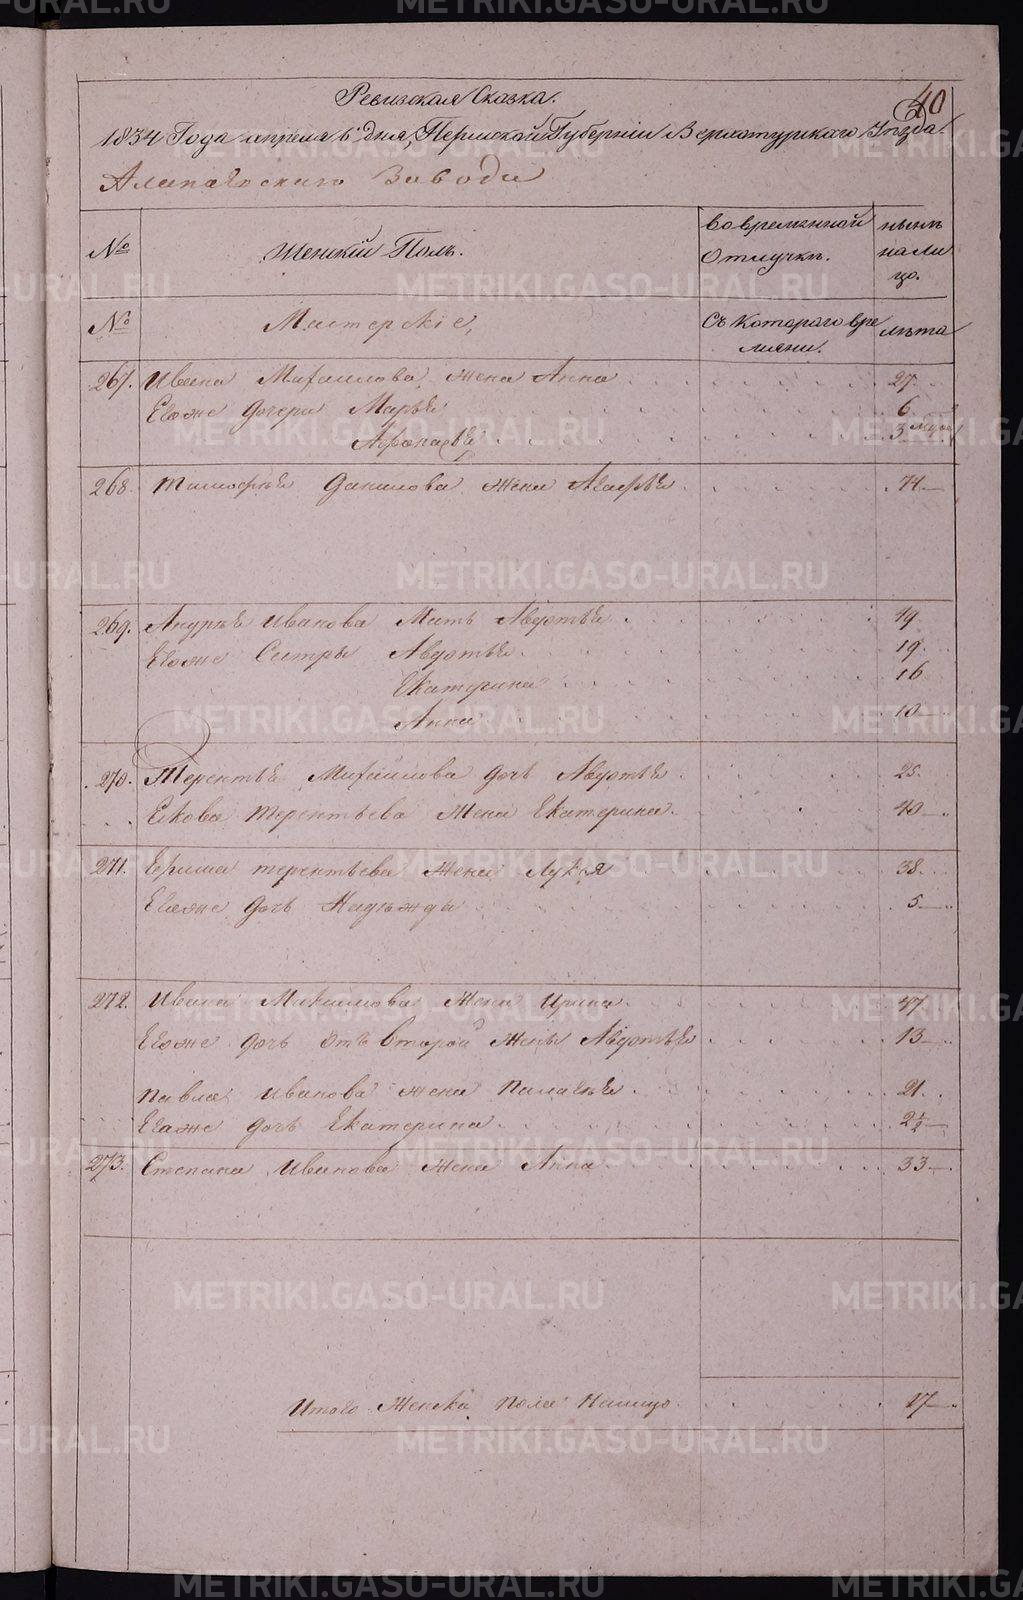 40
Ревизская Сказка.
1834 Года апреля 6 дня, Пермской Губерніи Верхотурского Уѣзда.
Алапаевского Завода
№ Женскій Полъ. во временной Отлучкѣ. нынѣ на лицо.
№ Мастерскіе, Съ Котораго времяни. лѣта
267. Ивана Михаилова жена Анна 27
Егоже дочери Марья 6
3
268. Тимофѣя Данилова жена 74
269. Андрѣя Иванова Мать Авдотья 49
Егоже Сестры Авдотья 19
Екатерина 16
Анна 10
270. Терентья Михаилова дочь Авдотья 25
Якова Терентьева Жена Екатерина 40
271. Терентьева Жена 38
Егоже дочь Надѣжда 5
272. Ивана Максимова Жена Ирина 47
Егоже дочь отъ второй Жены Авдотья 13
Павла Иванова жена Палагѣя 21
Егоже дочь Екатерина 2½
273. Степана Иванова Жена Анна 33
Итого Женска пола Налицо 17
METRIKI.GASO-URAL.RU